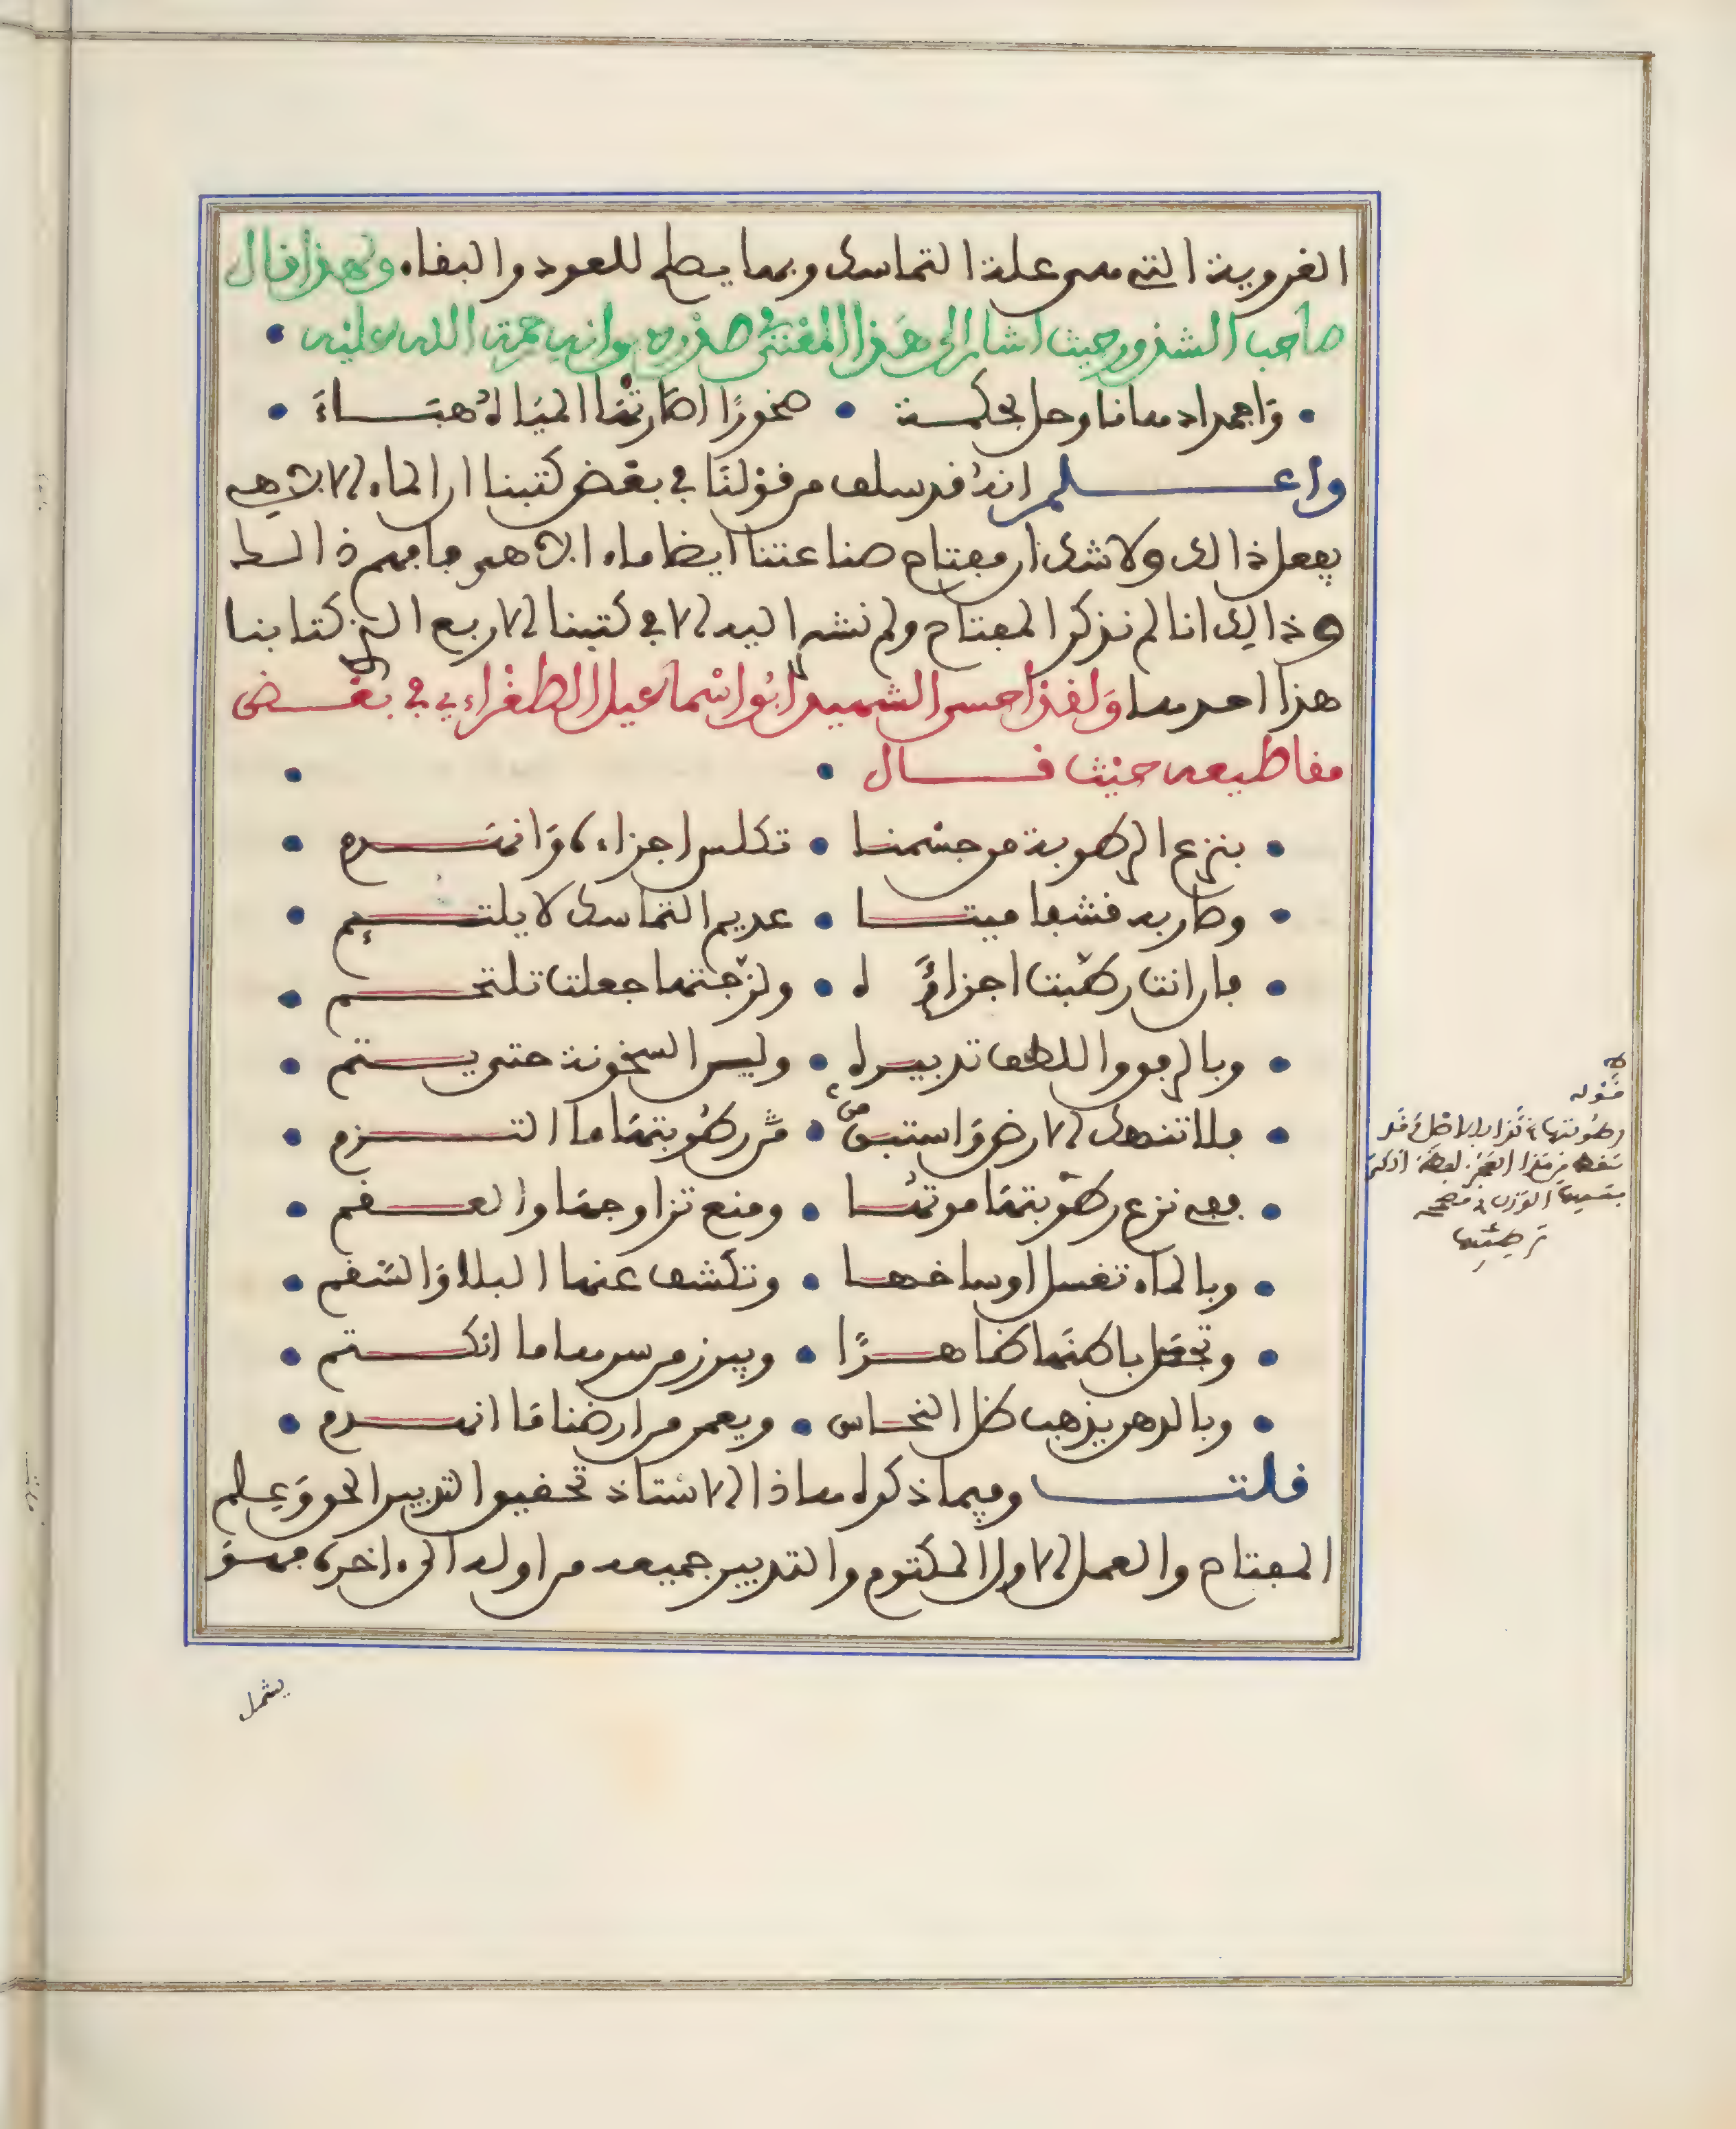 الغروية التي هي علة التماسك وبها يصلح للعود والبقاء ولهذا قال
صاحب الشذور حيث اشار الى هذا المعنى في صدر ديوانه رحمة الله عليه
• واجمداه ماء وحل بحكمة • صخورًا اطارتها المياه هباء •
واعلم انه قد سلف من قولنا في بعض كتبنا ان الماء الالاهي
يفعل ذالك ولا شك ان مفتاح صناعتنا ايضا ماء الاهي فافهم ذالك
وذالك انا لم نذكر المفتاح ولم نشر اليه الا في كتبنا الاربع التي كتابنا
هذا احدها ولقد احسن الشهيد ابو اسماعيل الطغراءي في بعض
مقاطيعه حيث قال •
• بنزع الرطوبة من جسمنا • تكلس اجزاءه وانهدم •
• وصار به قشفا ميتا • عديم التماسك لا يلتيم •
• فان انت رطبت اجزاءه • ولزجتها جعلت تلتحم •
• وبالرفق واللطف تدبيره • وليس السخونة حتى يستتم •
• فلا تنهك الارض واستبق من • رطوبتها ما التزم •
• ففي نزع رطوبتها موتها • ومنع تزاوجها والعقم •
• وبالماء تغسل اوساخها • وتكشف عنها البلا والسقم •
• وتجعل باطنها ظاهرًا • ويبرز من سرها ما انكتم •
• وبالدهن يذهب ظل النحاس • ويعمر من ارضنا ما انهدم •
قلت وفيما ذكره هاذا الاستاذ تحقيق التدبير الحق وعلم
المفتاح والعمل الاول المكتوم والتدبير جميعه من اوله الى اخره فهو
يشمل
قوله
رطوبتها كذا بالاصل وقد
سقط من هذا العجز لفظة